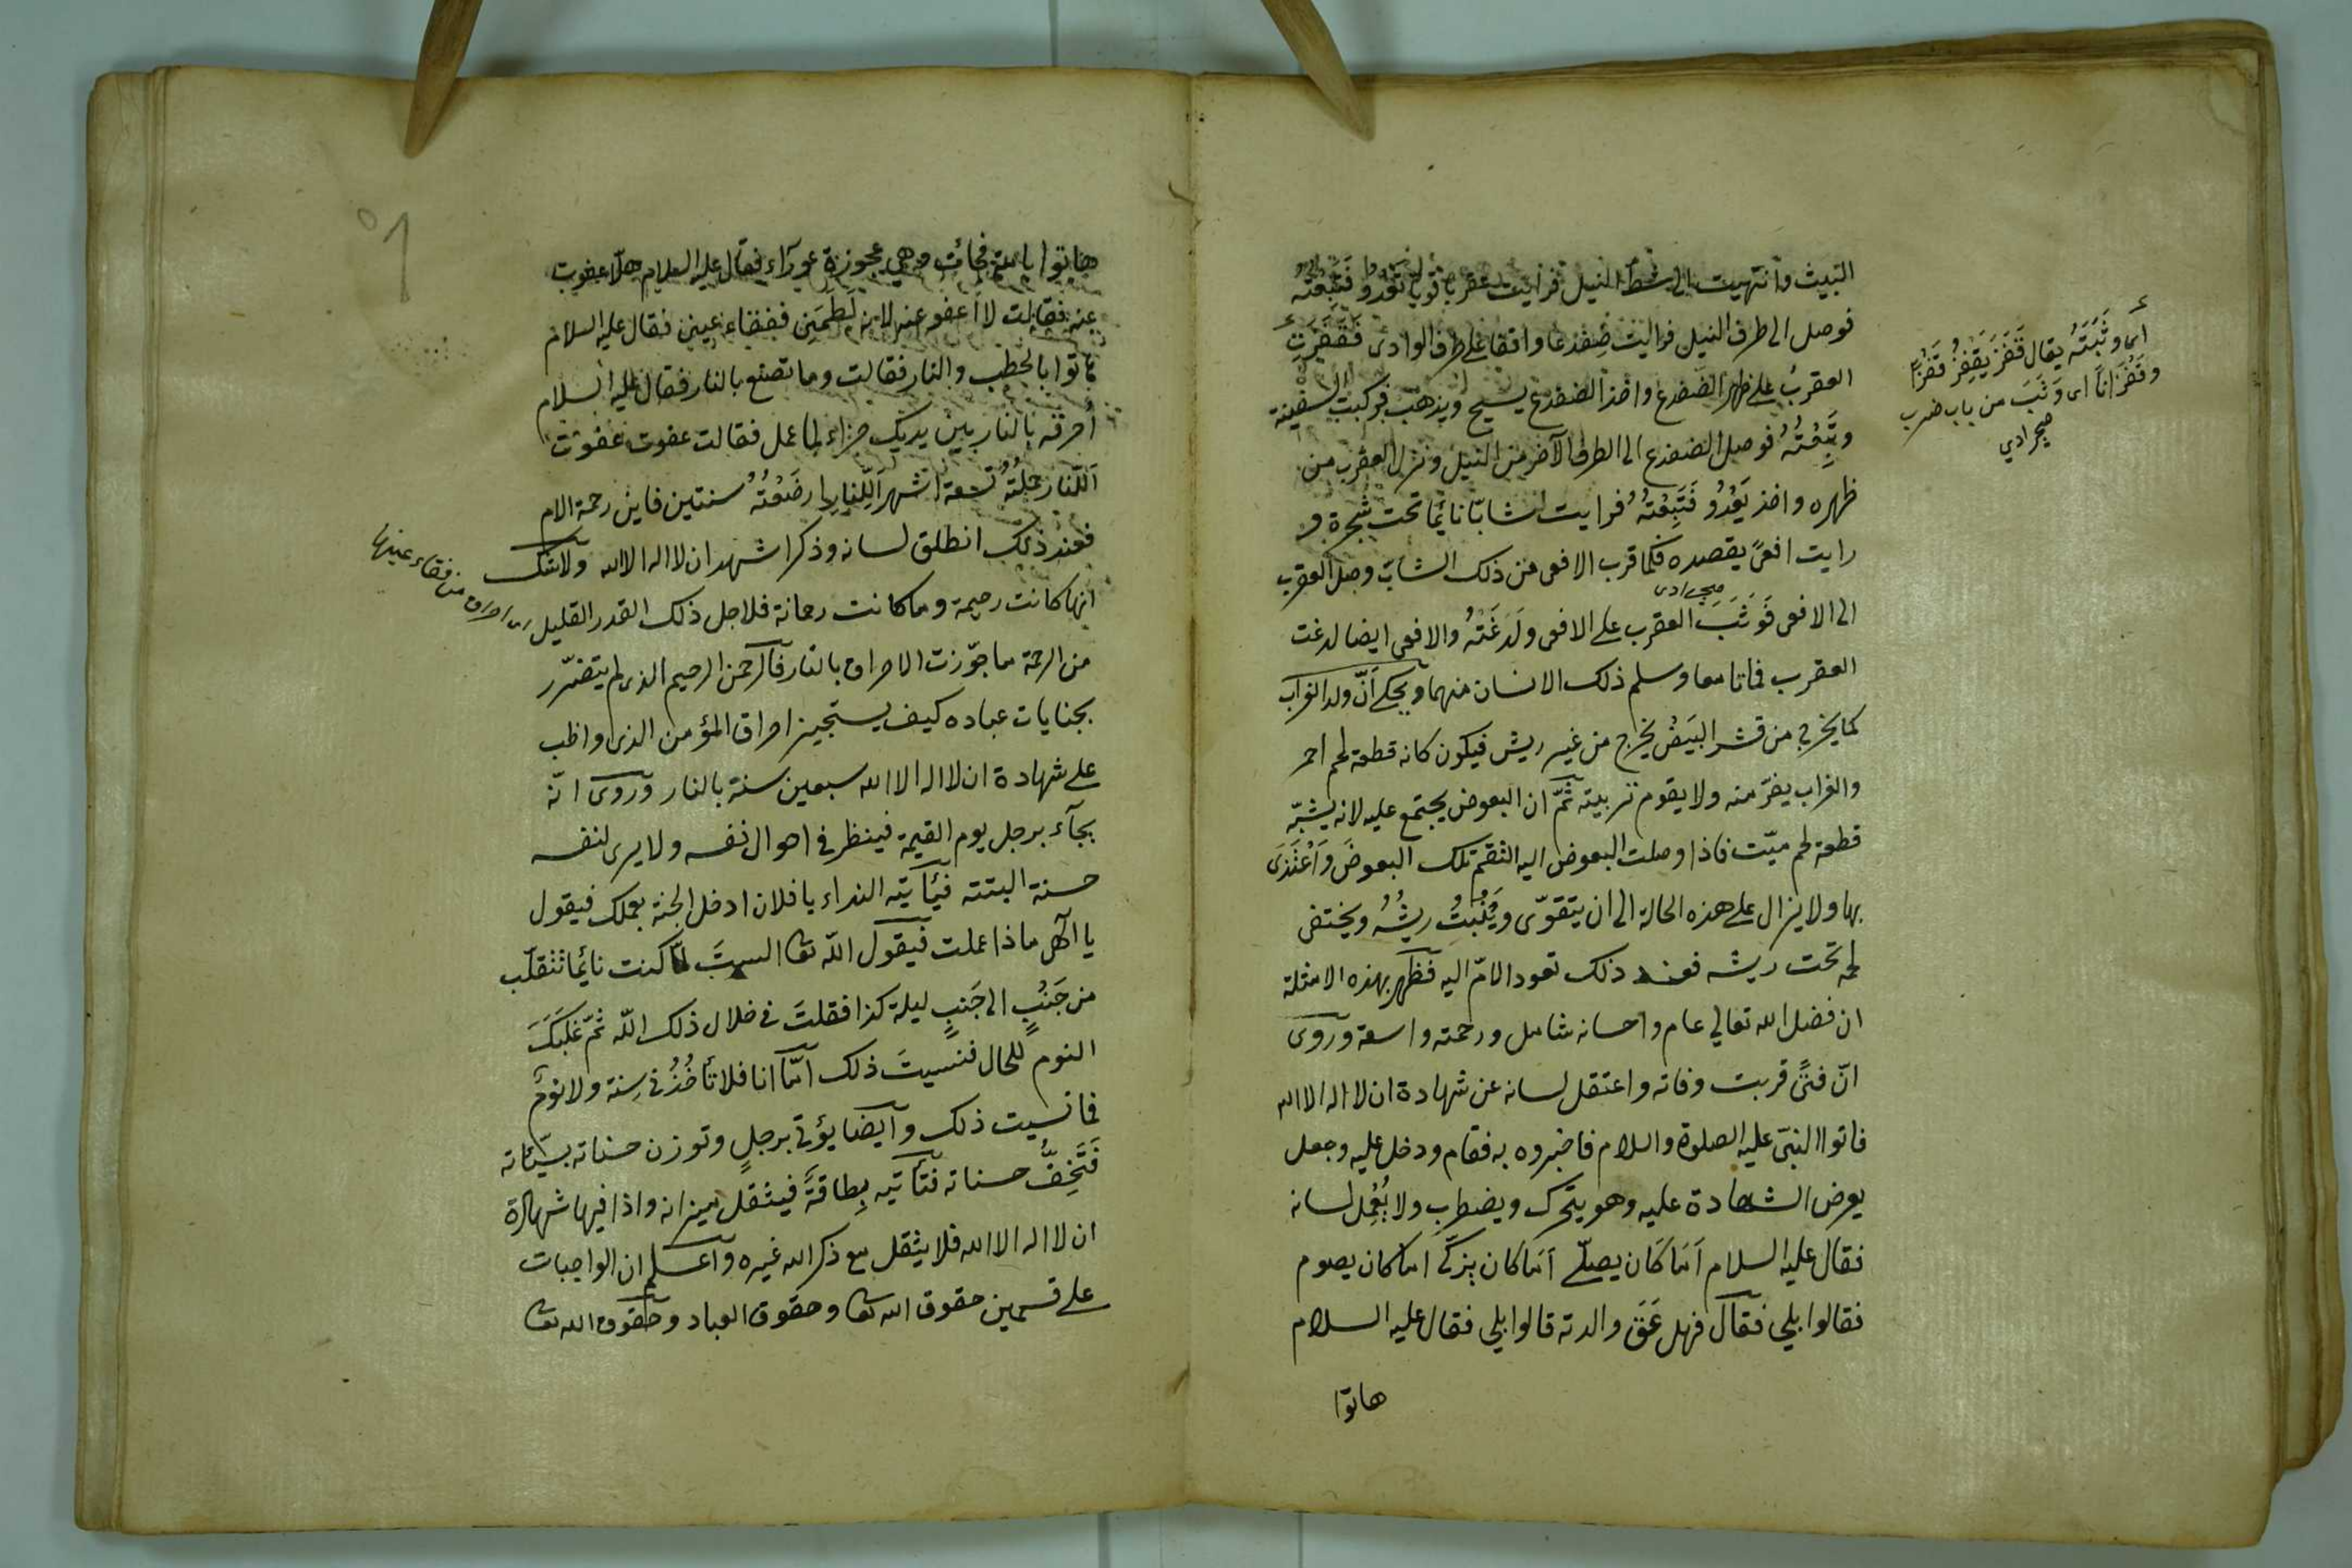 البيت وانتهيت الى شط النيل فرايت عقربا قويا تعدو فتبعته
فوصل الى طرف النيل فرايت ضفدعا واقفا على طرف الوادى فقفزت
العقرب على ظهر الضفدع واخذ الضفدع يسيح ويذهب فركبت السفينة
وتبعته فوصل الضفدع الى الطرف الآخر من النيل ونزل العقرب من
ظهره واخذ يعدو فتبعته فرايت شابا نائما تحت شجرة و
رايت افعى يقصده فلما قرب الافعى من ذلك الشاب وصل العقرب
الى الافعى فوثب العقرب على الافعى ولدغته والافعى ايضا لدغت
العقرب فماتا معا وسلم ذلك الانسان منهما ويحكى ان ولد الغراب
كما يخرج من قشر البيض يخرج من غير ريش فيكون كانه قطعة لحم احمر
والغراب يفر منه ولا يقوم تربيته ثم ان البعوض يجتمع عليه لانه يشبه
قطعة لحم ميت فاذا وصلت البعوض اليه التقم تلك البعوض واغتذى
بها ولا يزال على هذه الحالة الى ان يتقوى وينبت ريشه ويختفى
لحمه تحت ريشه فعند ذلك تعود الام اليه فظهر بهذه الامثلة
ان فضل الله تعالى عام واحسانه شامل ورحمته واسعة وروى
ان فتى قربت وفاته واعتقل لسانه عن شهادة ان لا اله الا الله
فاتوا النبى عليه الصلوة والسلام فاخبروه به فقام ودخل عليه وجعل
يعرض الشهادة عليه وهو يتحرك ويضطرب ولا يعمل لسانه
فقال عليه السلام اما كان يصلى اما كان يزكى اما كان يصوم
فقالوا بلى فقال فهل عق والدته قالوا بلى فقال عليه السلام
هاتوا
اى وثبته يقال قفز يقفز قفزا
وقفزانا اى وثب من باب ضرب
هاتوا بامه فجائت وهى عجوزة عوراء فقال عليه السلام هلا عفوت
عنه فقالت لا اعفو عنه لانه لطمنى ففقاء عينى فقال عليه السلام
هاتوا بالحطب والنار فقالت وما تصنع بالنار فقال عليه السلام
احرقه بالنار بين يديك جزاء لما عمل فقالت عفوت عفوت
أللنار حملته تسعة اشهر أللنار ارضعته سنتين فاين رحمة الام
فعند ذلك انطلق لسانه وذكر اشهد ان لا اله الا الله ولا شك
انها كانت رحيمة وما كانت رحمانة فلاجل ذلك القدر القليل
من الرحمة ما جوزت الاحراق بالنار فالرحمن الرحيم الذى لم يتضرر
بجنايات عباده كيف يستجيز احراق المؤمن الذى واظب
على شهادة ان لا اله الا الله سبعين سنة بالنار وروى انه
يجآء برجل يوم القيمة فينظر فى احوال نفسه ولا يرى لنفسه
حسنة البتة فيأتيه النداء يا فلان ادخل الجنة بعملك فيقول
يا الهى ماذا عملت فيقول الله تعا الست لما كنت نائما تتقلب
من جنب الى جنب ليلة كذا فقلت فى خلال ذلك الله ثم غلبك
النوم للحال فنسيت ذلك اما انا فلا تأخذنى سنة ولا نوم
فما نسيت ذلك وايضا يؤتى برجل وتوزن حسناته بسيئاته
فتخف حسناته فتأتيه بطاقة فيثقل ميزانه واذا فيها شهادة
ان لا اله الا الله فلا يثقل مع ذكر الله غيره واعلم ان الواجبات
على قسمين حقوق الله تعا وحقوق العباد وحقوق الله تعا